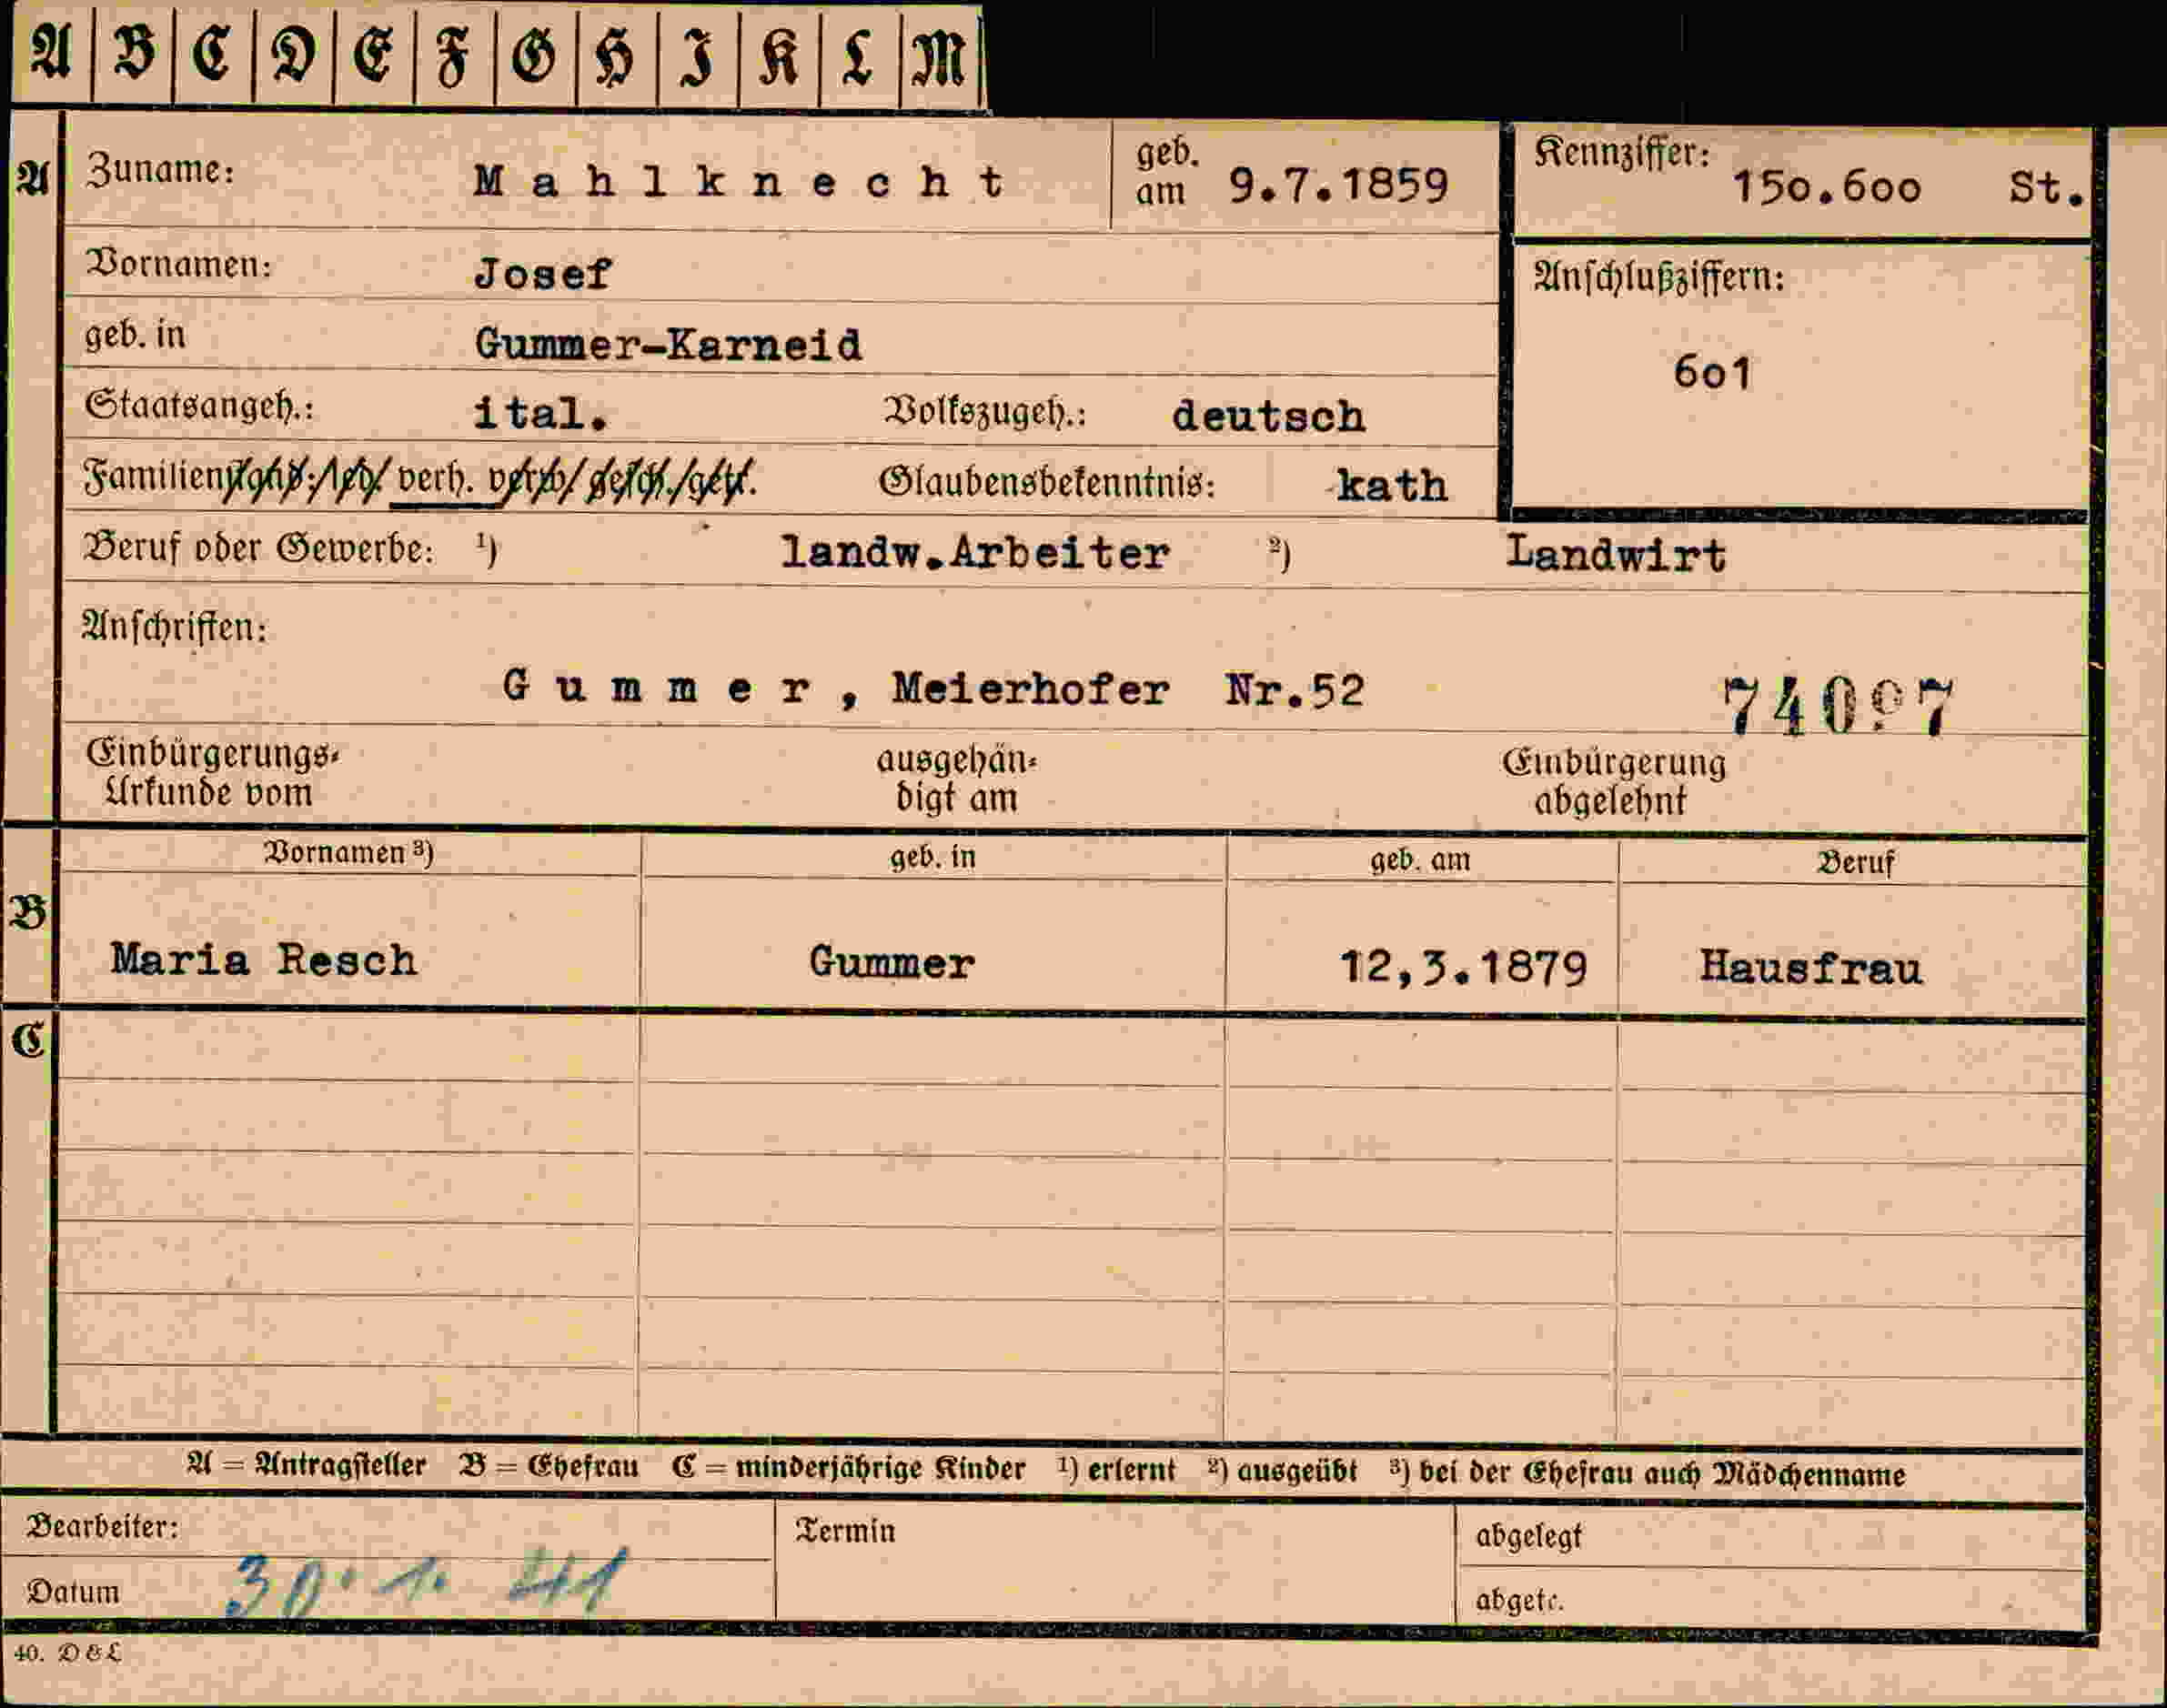 A B C D E F G H I K L M
A Zuname: Mahlknecht geb. am 9.7.1859 Kennziffer: 150.600 St.
Vornamen: Josef Anschlußziffern:
geb. in Gummer-Karneid 601
Staatsangeh.: ital. Volkszugeh.: deutsch
Familien verh. Glaubensbekenntnis: kath
Beruf oder Gewerbe: ¹) landw.Arbeiter ²) Landwirt
Anschriften:
Gummer, Meierhofer Nr.52
Einbürgerungs- ausgehän- Einbürgerung
Urkunde vom digt am abgelehnt
Vornamen ³) geb. in geb. am Beruf
B
Maria Resch Gummer 12,3.1879 Hausfrau
C
A = Antragsteller B = Ehefrau C = minderjährige Kinder ¹) erlernt ²) ausgeübt ³) bei der Ehefrau auch Mädchenname
Bearbeiter: Termin abgelegt
Datum 30. 1. 41 abgetr.
40. D & L